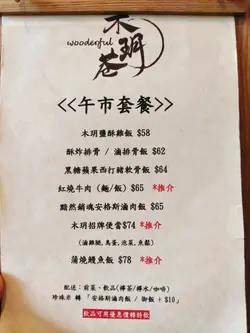 木玥巷
wooderful
<<午市套餐>>
木玥鹽酥雞飯 $58
酥炸排骨 / 滷排骨飯 $62
黑糖蘋果西打豬軟骨飯 $64
紅燒牛肉 (麵/飯) $65 *推介
黯然銷魂安格斯滷肉飯 $65
木玥招牌便當$74 *推介
(滷雞腿,鳥蛋,泡菜,魚鬆)
蒲燒鰻魚飯 $78 *推介
配送：前菜、飲品(檸茶/檸水/咖啡)
珍珠米 轉 「安格斯滷肉飯 / 御飯 +$10」
飲品可用優惠價轉特飲